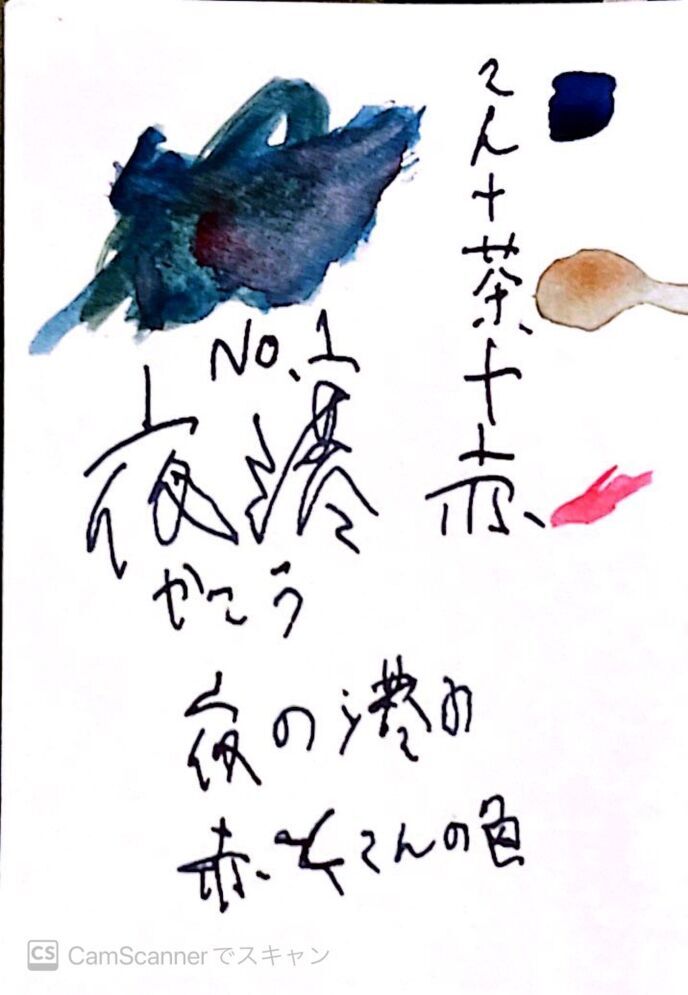 こん+茶+赤
No.1
夜港
やこう
夜の港の
赤 こんの色
CS CamScannerでスキャン